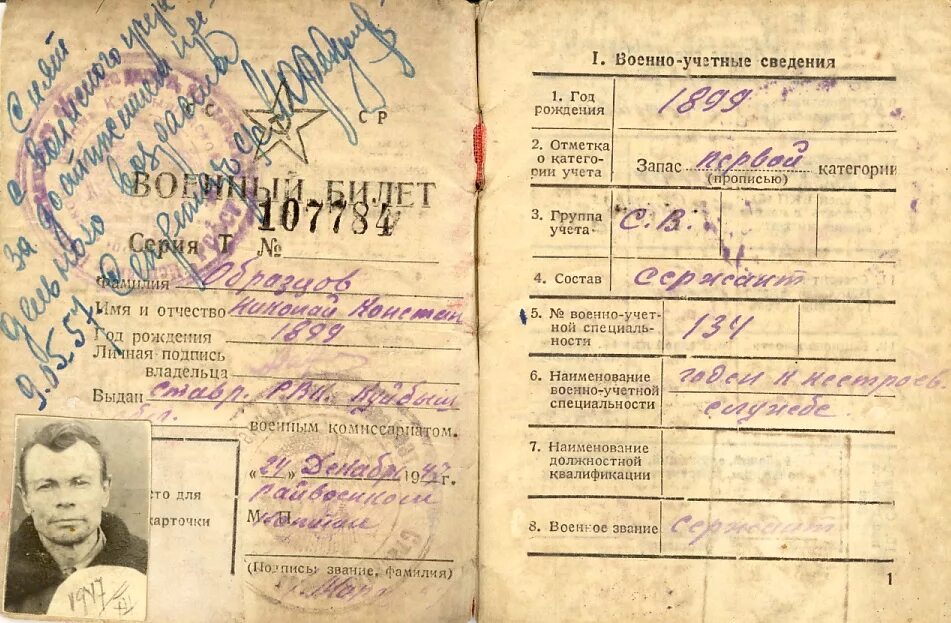 Снят
с воинского учета
за достижением пре-
дельного возраста
9.05.57
С С С Р
ВОЕННЫЙ БИЛЕТ
Серия Т № 107784
Фамилия Образцов
Имя и отчество Николай Констан
Год рождения 1899
Личная подпись
владельца
Выдан Ставр. РВК. Куйбыш
обл. военным комиссариатом.
«24» Декабр 1947г.
Райвоенком
М. П.
(Подпись, звание, фамилия)
то для
карточки
1947
XII
I. Военно-учетные сведения
1. Год
рождения 1899
2. Отметка
о катего-
рии учета Запас первой категории
(прописью)
3. Группа
учета С.В.
4. Состав сержант
5. № военно-учет-
ной специаль-
ности 134
6. Наименование
военно-учетной
специальности годен к нестроев
службе
7. Наименование
должностной
квалификации
8. Военное звание сержант
1